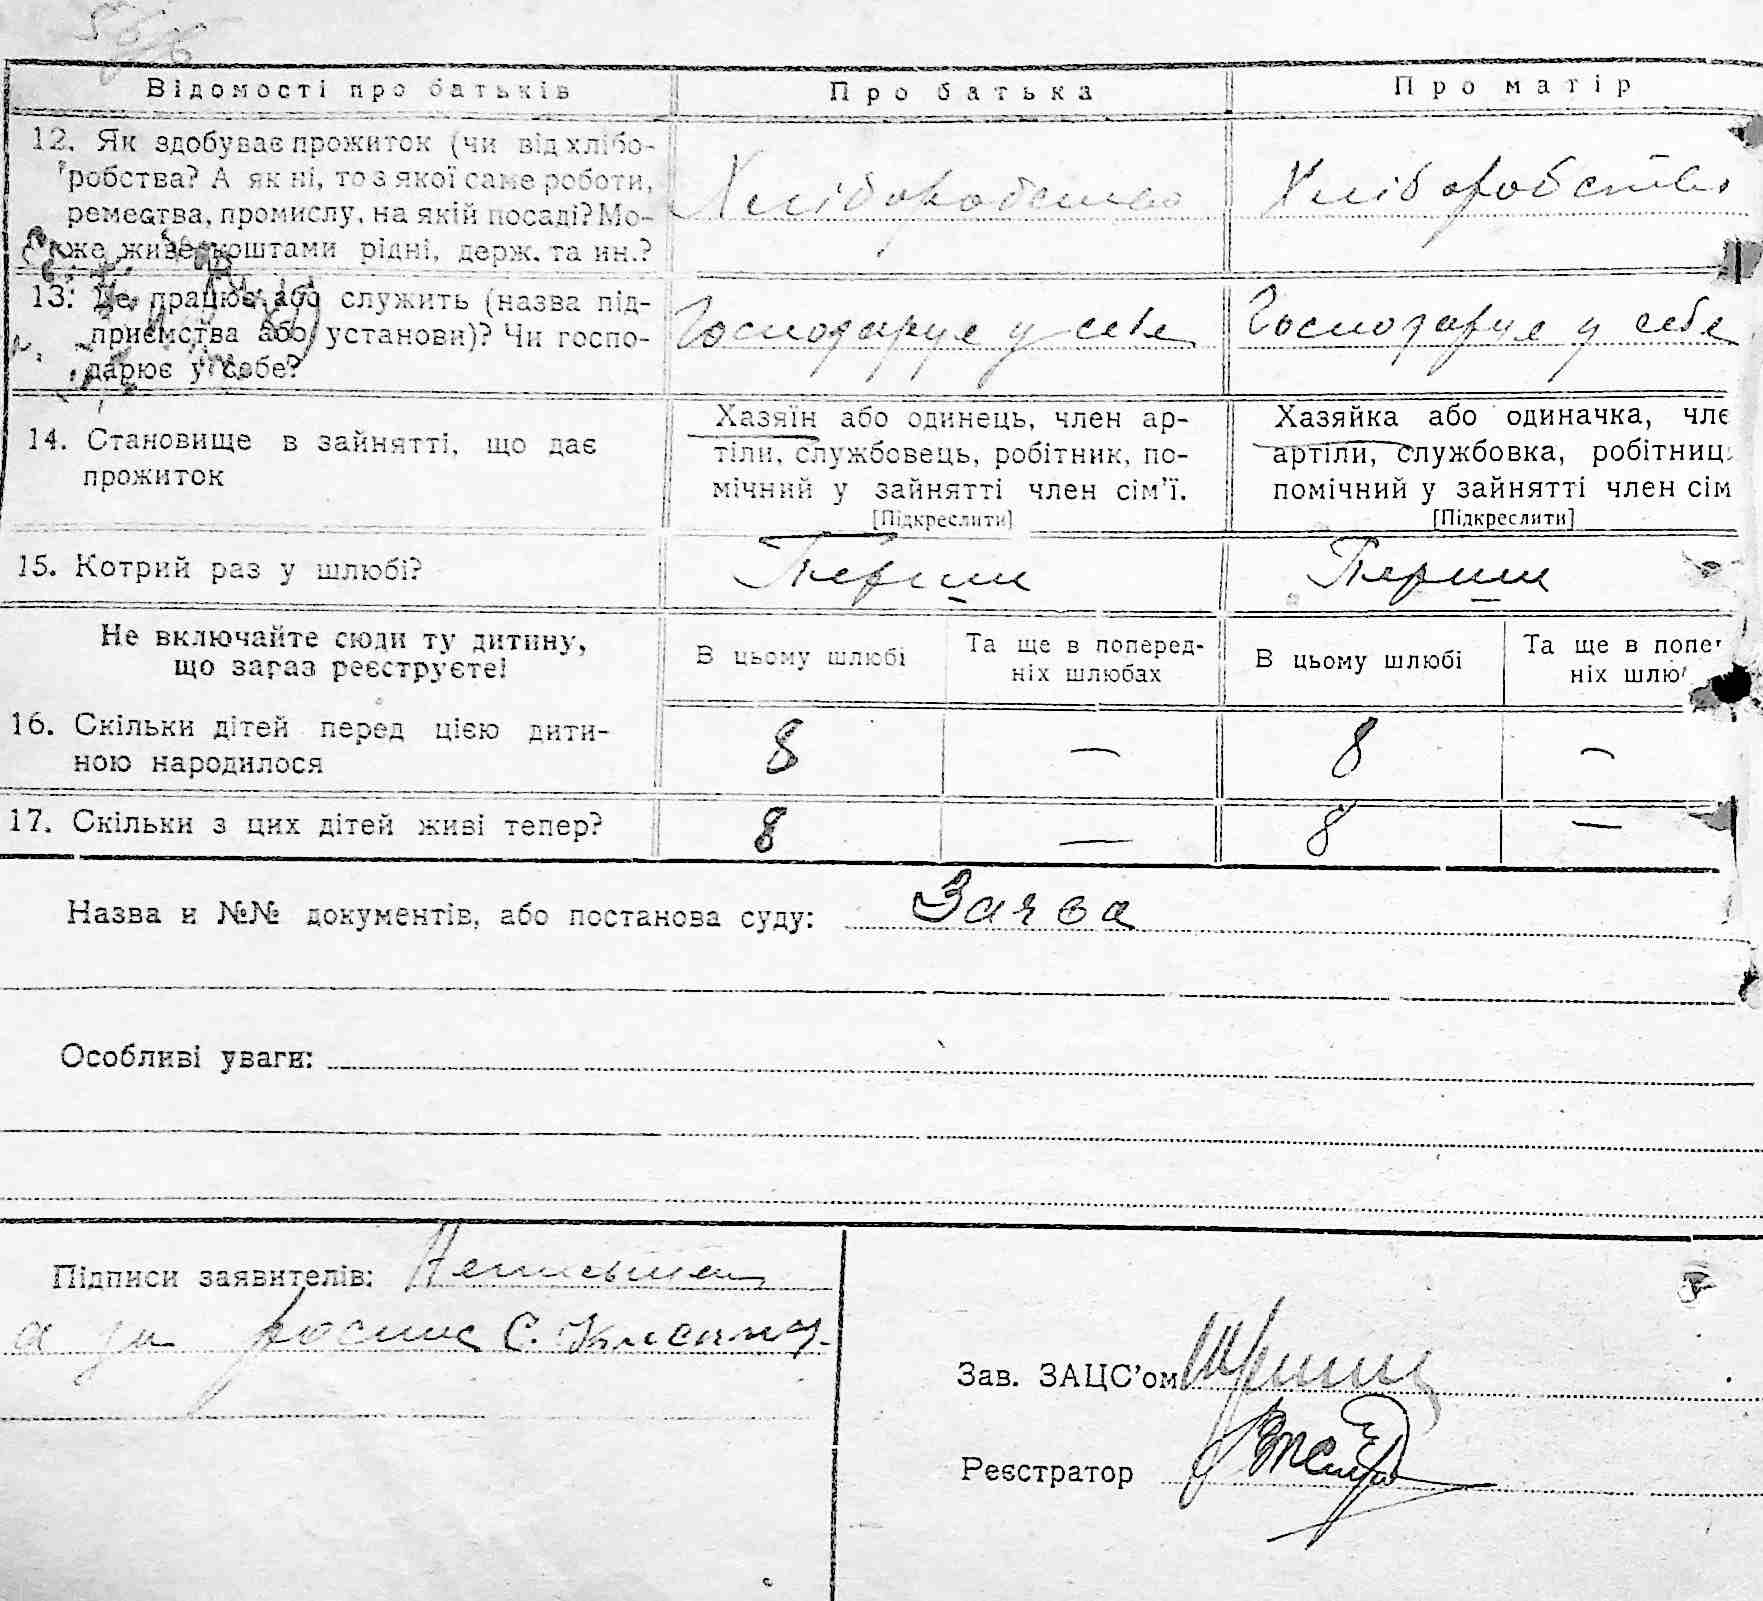 Відомості про батьків	Про батька	Про матір
12. Як здобуває прожиток (чи від хлібо-
робства? А як ні, то з якої саме роботи,
ремества, промислу, на якій посаді? Мо-
же живе коштами рідні, держ. та ин.?
Хліборобство	Хліборобство
13. Де працює або служить (назва під-
приємства або установи)? Чи госпо-
дарює у себе?
Господарує у себе	Господарує у себе
14. Становище в зайнятті, що дає
прожиток
Хазяїн або одинець, член ар-
тіли, службовець, робітник, по-
мічний у зайнятті член сім'ї.
[Підкреслити]
Хазяйка або одиначка, чле
артіли, службовка, робітниц
помічний у зайнятті член сім
[Підкреслити]
15. Котрий раз у шлюбі?	Перши	Перши
Не включайте сюди ту дитину,
що зараз реєструєте!
В цьому шлюбі	Та ще в поперед-
ніх шлюбах
В цьому шлюбі	Та ще в попер
ніх шлю
16. Скільки дітей перед цією дити-
ною народилося
8	—	8	—
17. Скільки з цих дітей живі тепер?	8	—	8	—
Назва и №№ документів, або постанова суду: Заява
Особливі уваги:
Підписи заявителів:
С.
Зав. ЗАЦС'ом
Реєстратор